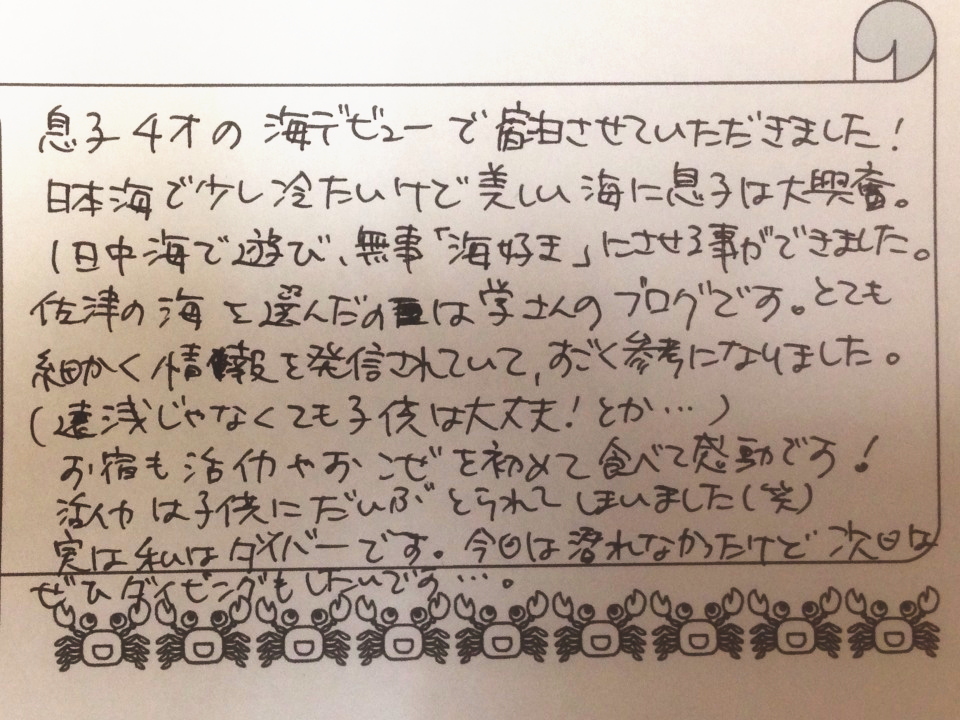 息子4才の 海デビューで宿泊させていただきました!
日本海で少し冷たいけど美しい海に息子は大興奮。
1日中海で遊び、無事「海好き」にさせる事ができました。
佐津の海を選んだのは学さんのブログです。とても
細かく情報を発信されていて、すごく参考になりました。
(遠浅じゃなくても子供は大丈夫!とか…)
お宿も活イカやおこぜを初めて食べて感動です!
活イカは子供にだいぶとられてしまいました(笑)
実は私はダイバーです。今回は潜れなかったけど次回は
ぜひダイビングもしたいです…。